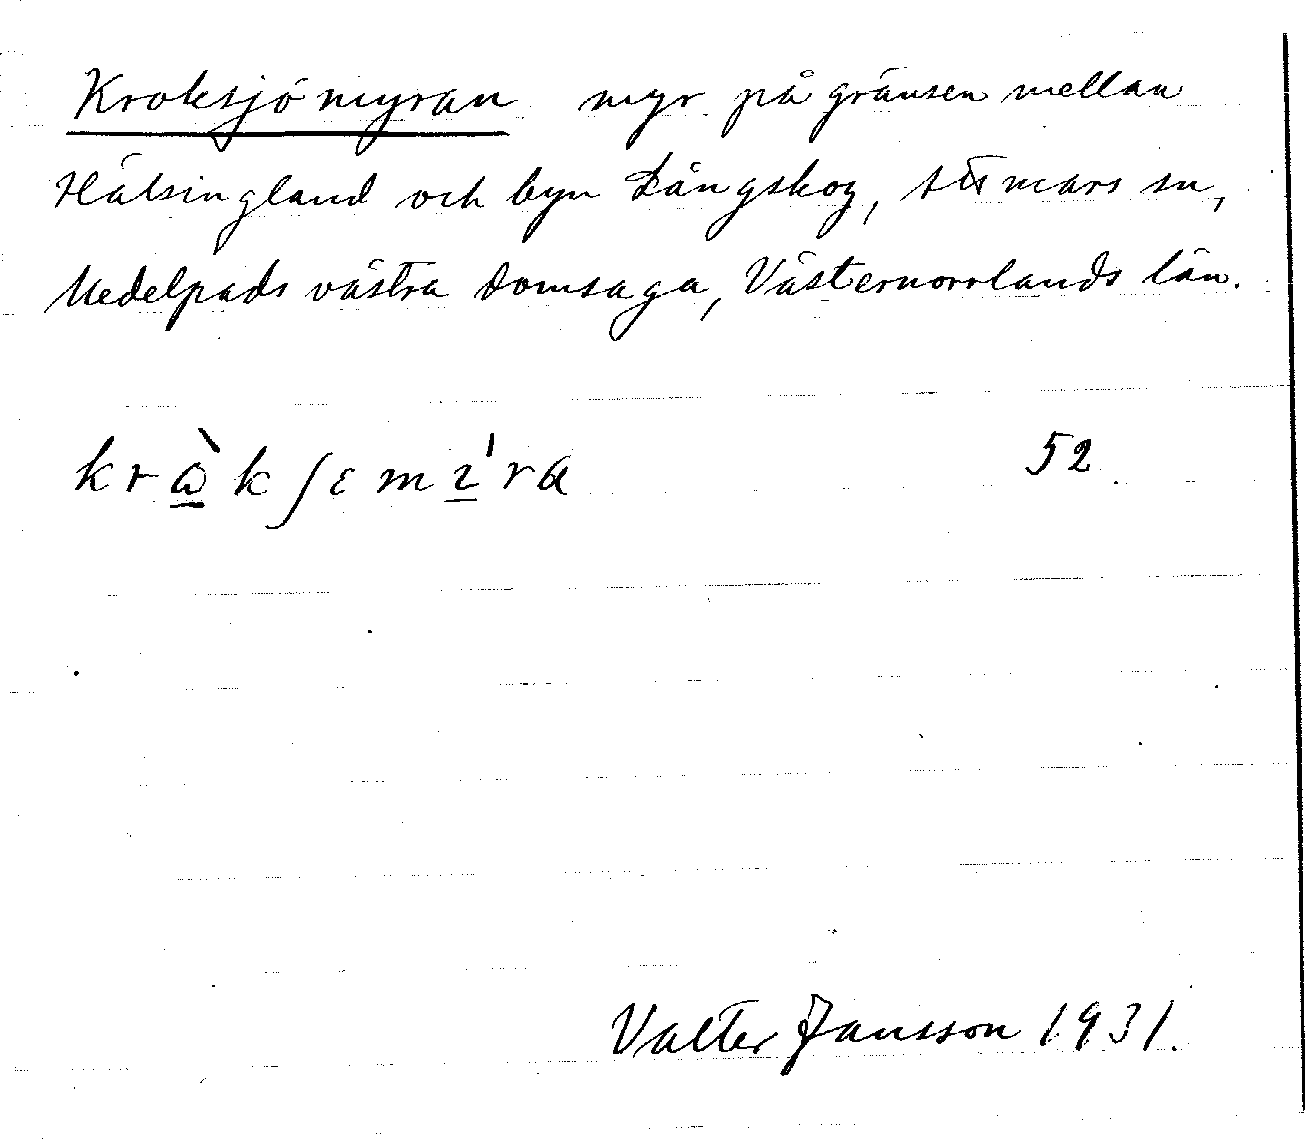 Kroksjömyran myr på gränsen mellan
Hälsingland och byn Långskog, Attmars sn,
Medelpads västra domsaga, Västernorrlands län.
52
Valter Jansson 1931.